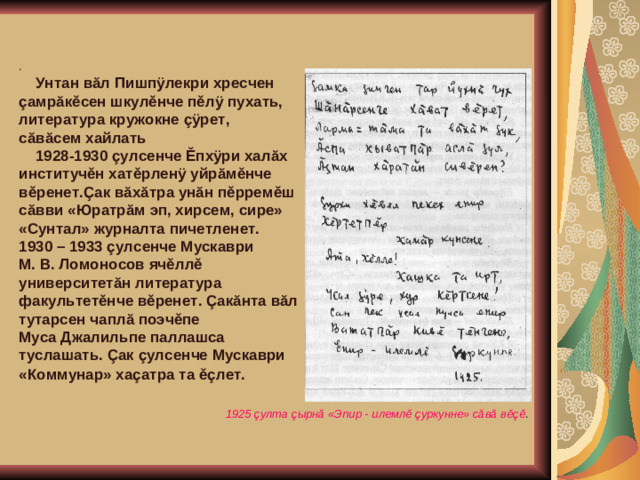 .
Унтан вăл Пишпÿлекри хресчен
çамрăкĕсен шкулĕнче пĕлÿ пухать,
литература кружокне çÿрет,
сăвăсем хайлать
1928-1930 çулсенче Ĕпхÿри халăх
институчĕн хатĕрленÿ уйрăмĕнче
вĕренет.Çак вăхăтра унăн пĕрремĕш
сăвви «Юратрăм эп, хирсем, сире»
«Сунтал» журналта пичетленет.
1930 – 1933 çулсенче Мускаври
М. В. Ломоносов ячĕллĕ
университетăн литература
факультетĕнче вĕренет. Çакăнта вăл
тутарсен чаплă поэчĕпе
Муса Джалильпе паллашса
туслашать. Çак çулсенче Мускаври
«Коммунар» хаçатра та ĕçлет.
çинчен тар йухнă чух
Шăнăрсенче хăват вĕрет,
та вăхăт çук,
çул,
хăратăн сивĕрен?
хĕвел пекех епир
Хĕртетпĕр
хамăр кунсене.
Ята, хĕлле!
та ирт,
çӳре, хур кĕртсене!
пек пулса епир
Ватăтпăр кивĕ тĕнчене,
Епир - илемлĕ çуркунне.
1925.
1925 çулта çырнă «Эпир - илемлĕ çуркунне» сăвă вĕçĕ.